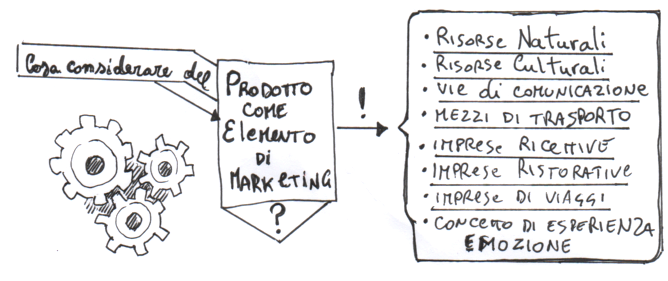 Cosa considerare del
PRODOTTO
COME
ELEMENTO
DI
MARKETING
?
!
• RISORSE NATURALI
• RISORSE CULTURALI
• VIE di COMUNICAZIONE
• MEZZI DI TRASPORTO
• IMPRESE RICETTIVE
• IMPRESE RISTORATIVE
• IMPRESE DI VIAGGI
• CONCETTO DI ESPERIENZA
EMOZIONE